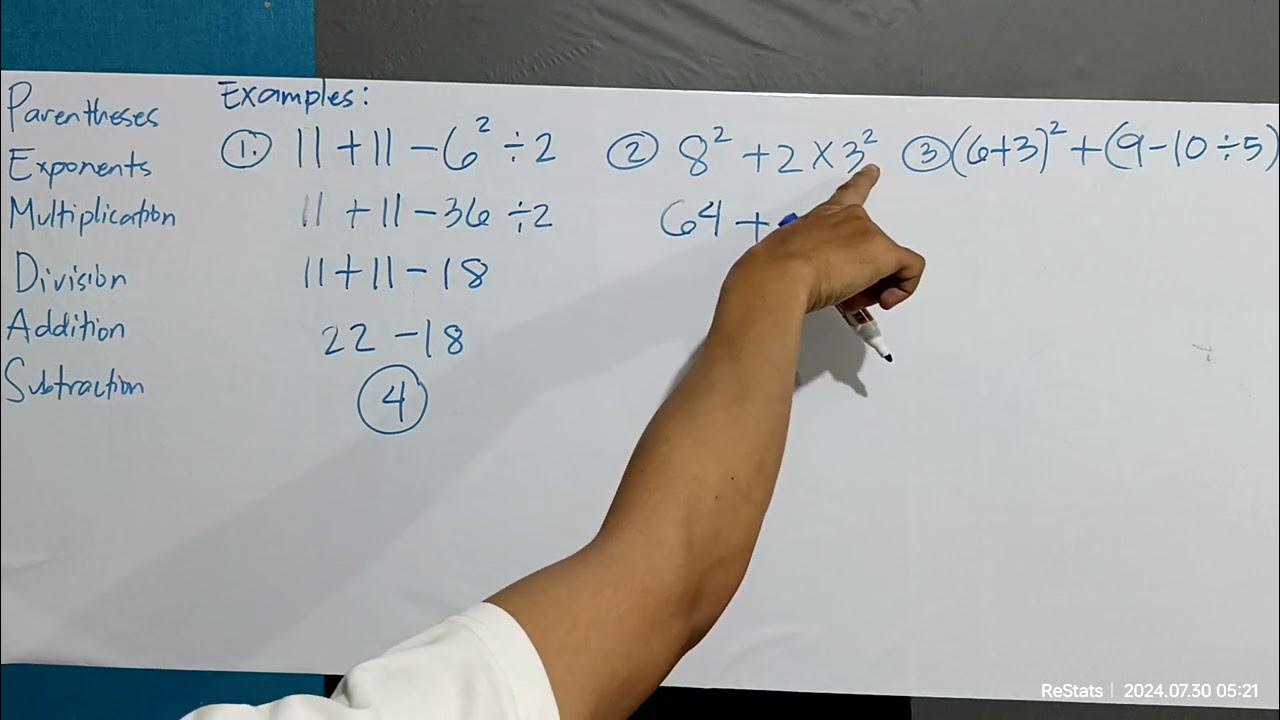 Parentheses
Exponents
Multiplication
Division
Addition
Subtraction
Examples:
①. 11 + 11 − 6² ÷ 2
11 + 11 − 36 ÷ 2
11 + 11 − 18
22 − 18
4
② 8² + 2 × 3²
64 +
③ (6+3)² + (9 − 10 ÷ 5)
ReStats | 2024.07.30 05:21